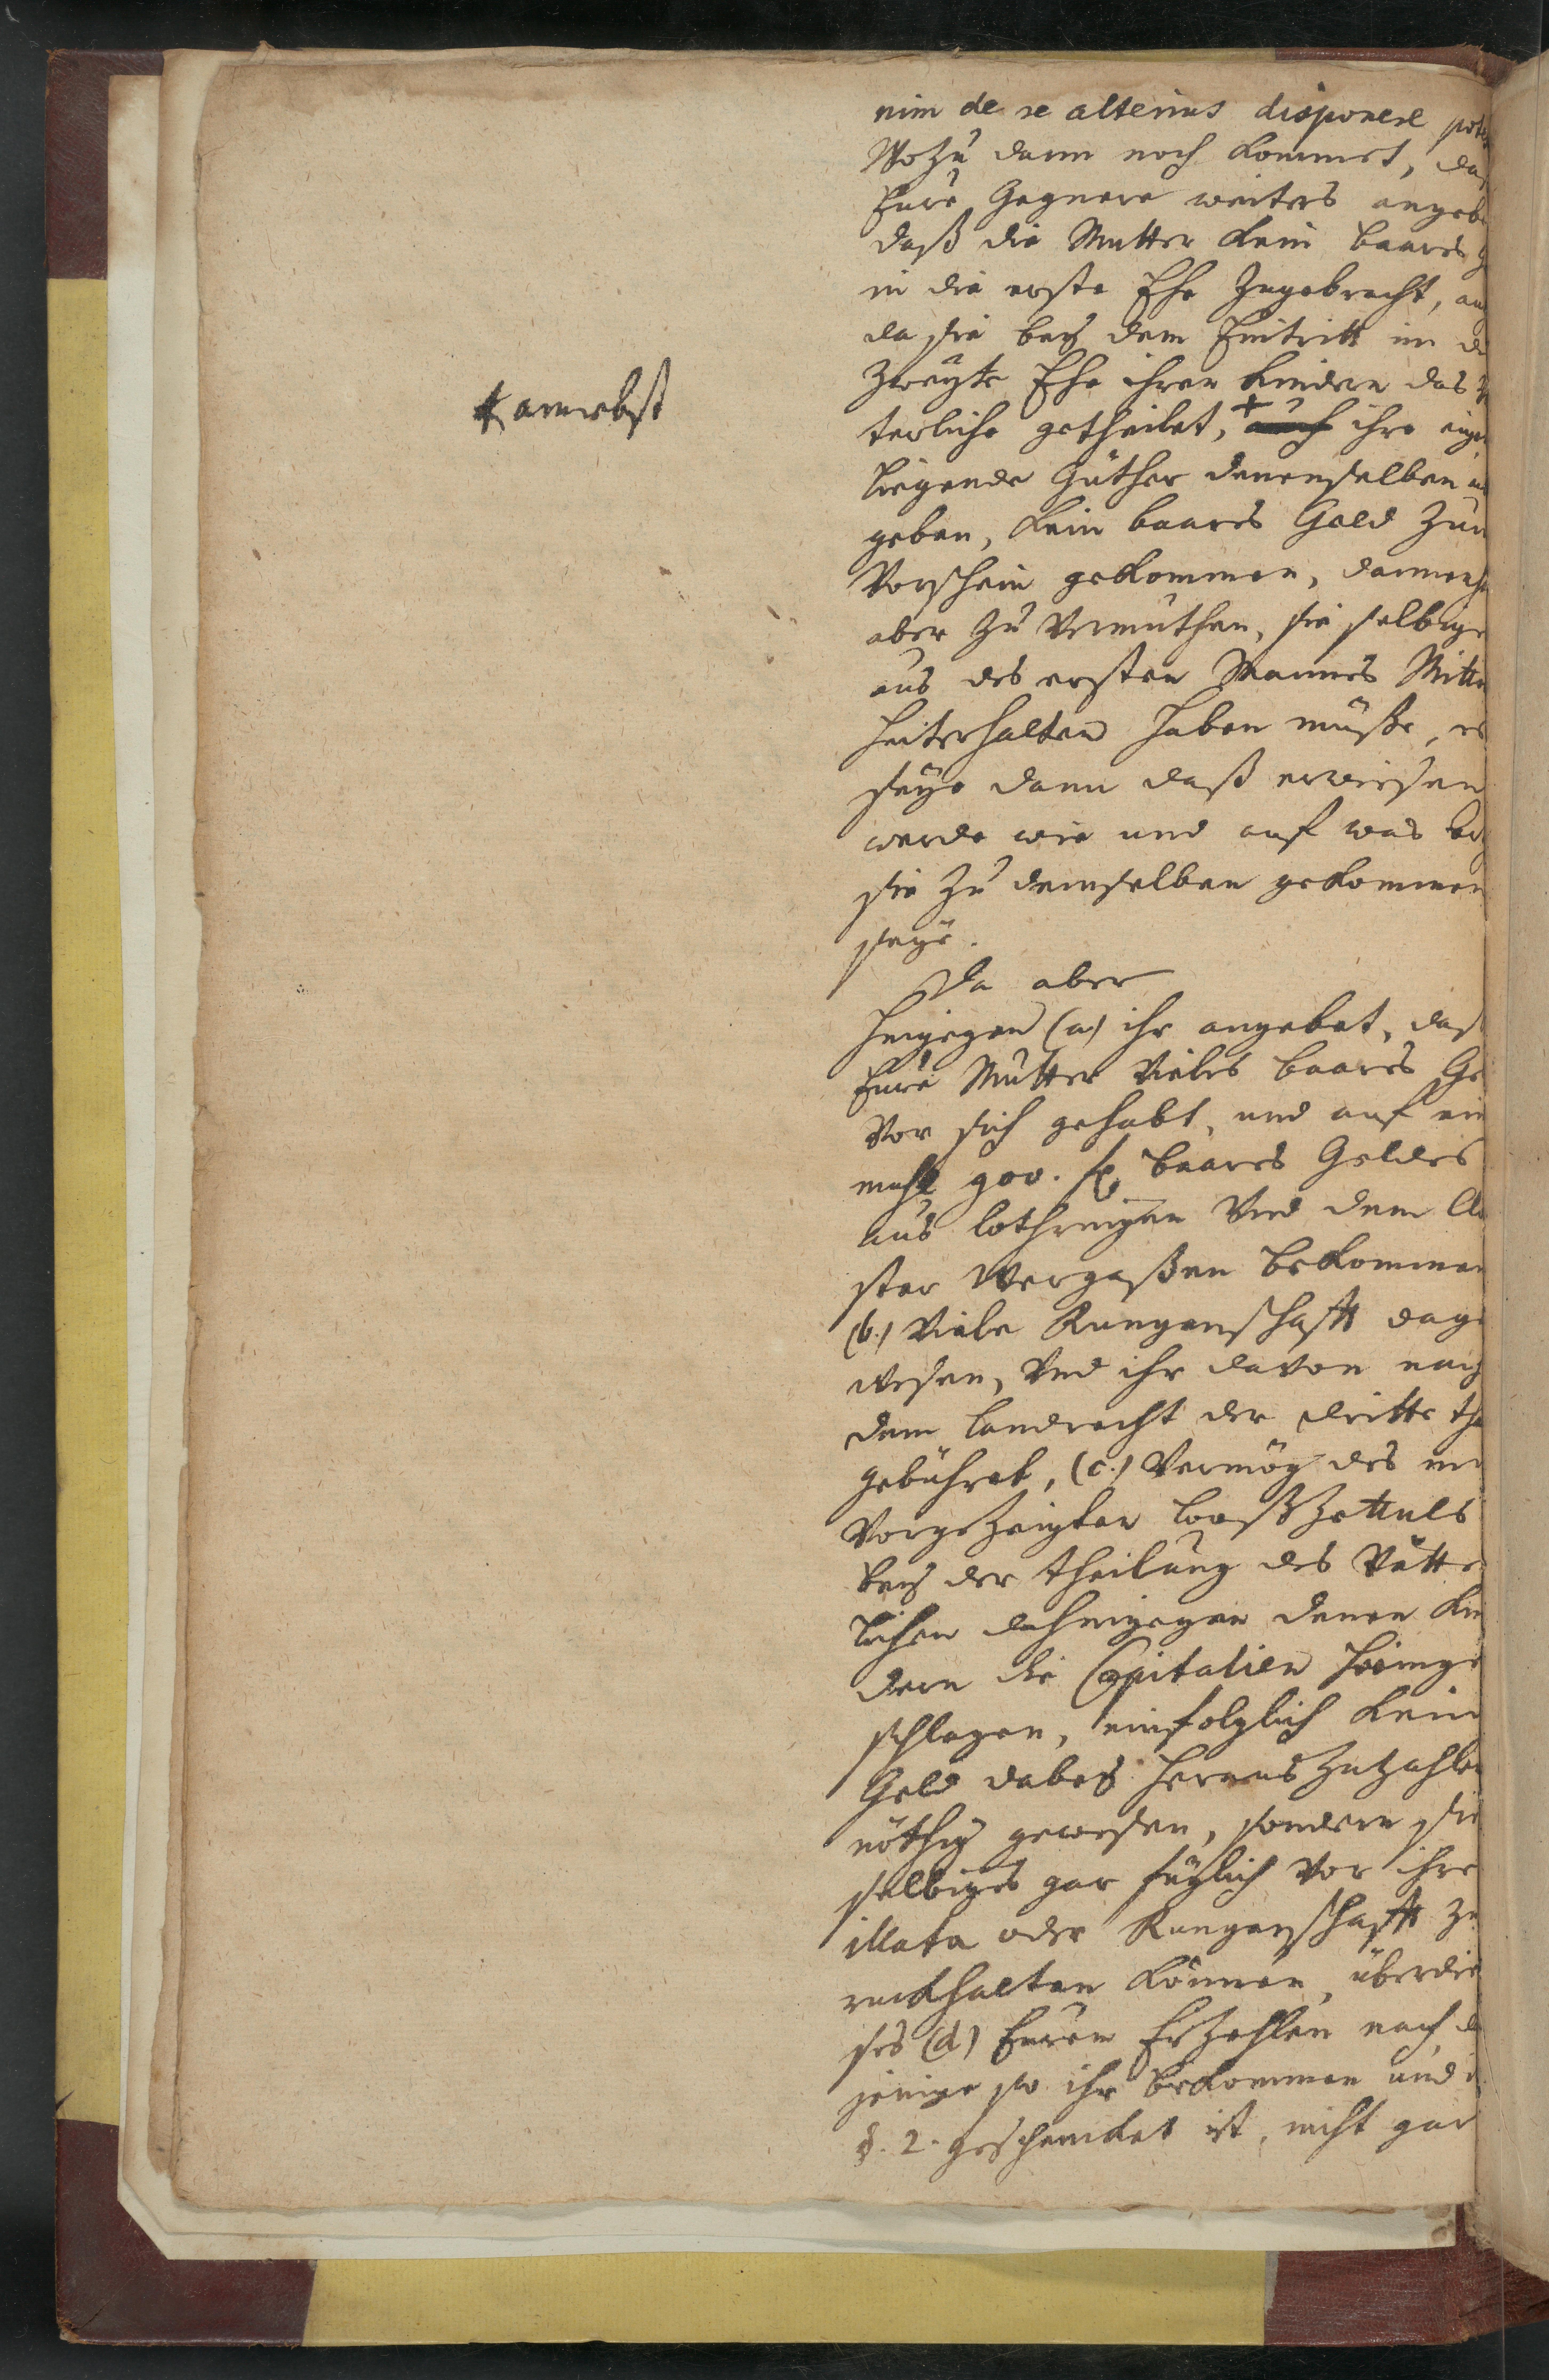 nim de re alterius disponere pote
Wozu dann noch kommet, daß
Eure Gegnere weiters angebe
daß die Mutter kein baares G
in die erste Ehe zugebracht, auch
da sie bey dem Eintritt in d
zweyte Ehe ihren Kindern das V
terliche getheilet, + auch ihre eige
ligende Güther denenselben
geben, kein baares Geld zum
Vorschein gekommen, dannenh
aber zu vermuthen, sie selbige
aus des ersten Mannes Mitte
hinterhalten haben müße, es
seye dann daß erwiesen
werde wie und auf was
sie zu demselben gekommen
seye.
Da aber
hingegen (a) ihr angebet, daß
Eure Mutter vieles baares Ge
vor sich gehabt, und auf ein
mahl 900. baares Geldes
aus Lothringen und dem Clo
ster bekommen
(b.) viele Rungenschafft dage
wesen, und ihr davon nach
dem Landrecht der dritte the
gebühret, (c.) vermög des mi
vorgezeigten Looßzettuls
bey der theilung des Vätter
lichen dahingegen denen Kin
dern die Capitalien heimge
schlagen, einfolglich kein
Geld dabey herauszuzahlen
nöthig gewesen, sondern sie
selbiges gar füglich vor ihre
illata oder Rungenschafft zu
rückhalten können, überdie
ses (d) Eurem Erzehlen nach, d
jenige so ihr bekommen und
§. 2. geschencket ist, nicht gar
+ annebst